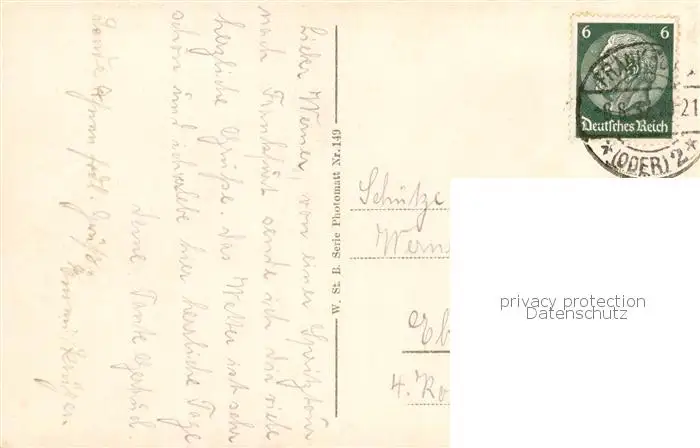 Lieber Werner, von einer Spritztour
nach Frankfurt sende ich Dir viele
herzliche Grüße. Das Wetter ist sehr
schön und ich verlebe hier herrliche Tage
Deine Tante Gertrud.
Sendet Ihnen frdl. Grüße
Emmi
W. St. B. Serie Photomatt Nr. 149
6 6
Deutsches Reich
FRANKFURT
(ODER) 2
21
Schütze
Wern
4. Ko
privacy protection
Datenschutz